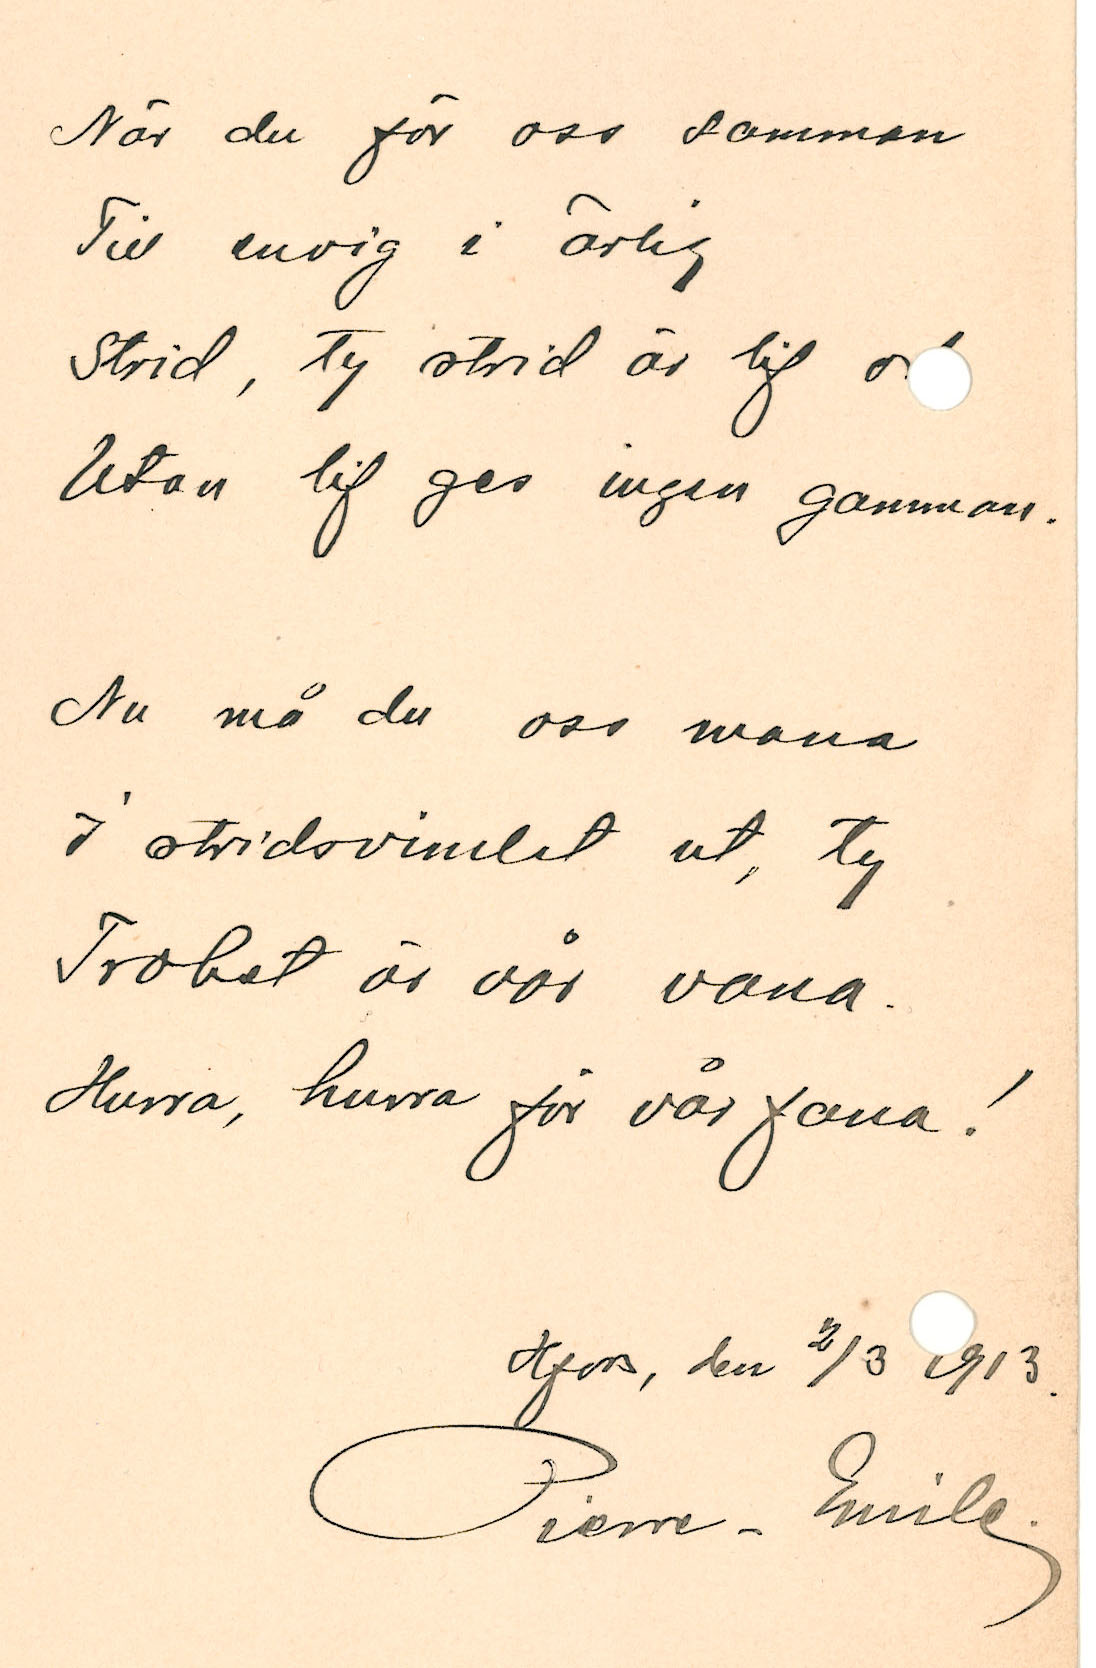 När du för oss samman
Till envig i ärlig
Strid, ty strid är lif
Utan lif ges ingen gamman.
Nu må du oss mana
I stridsvimlet ut, ty
Trohet är vår vana.
Hurra, hurra för vår fana!
Hfors, den 2/3 1913.
Pierre-Emile.